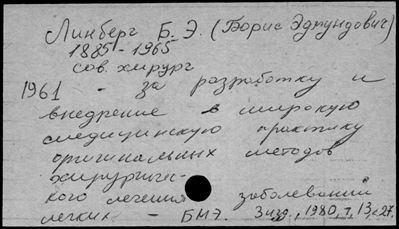 Линберг Б. Э. (Борис Эдмундович)
1885-1965
сов. хирург
1961 - за разработку и
внедрение в широкую
медицинскую практику
оригинальных методов
хирургичес-
кого лечения заболеваний
легких - БМЭ. 3 изд., 1980, т. 13, с. 27.